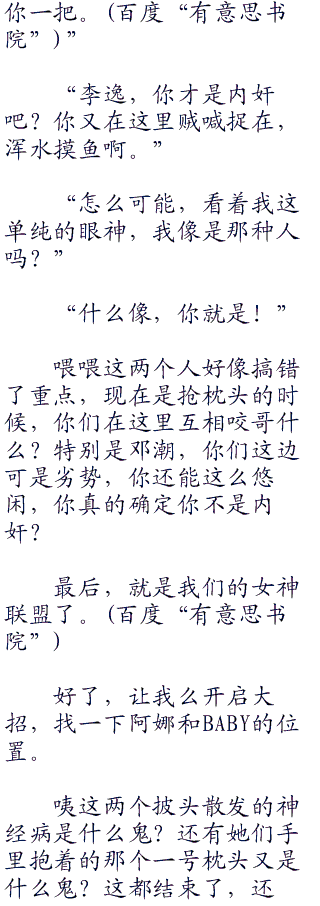 你一把。(百度“有意思书
院”)”
“李逸，你才是内奸
吧？你又在这里贼喊捉在，
浑水摸鱼啊。”
“怎么可能，看着我这
单纯的眼神，我像是那种人
吗？”
“什么像，你就是！”
喂喂这两个人好像搞错
了重点，现在是抢枕头的时
候，你们在这里互相咬哥什
么？特别是邓潮，你们这边
可是劣势，你还能这么悠
闲，你真的确定你不是内
奸？
最后，就是我们的女神
联盟了。(百度“有意思书
院”)
好了，让我么开启大
招，找一下阿娜和BABY的位
置。
咦这两个披头散发的神
经病是什么鬼？还有她们手
里抱着的那个一号枕头又是
什么鬼？这都结束了，还